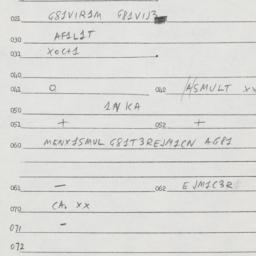 021 G81VIR1M G81VIJ3
030 AF1L1T
031 XOCT1
040
041 O 042 ASMULT XX
050 1NKA
051 + 052 +
060 MENX1SMUL G81T3REJM1CN AG81
061 – 062 EJM1C3R
070 CA. XX
071 –
072